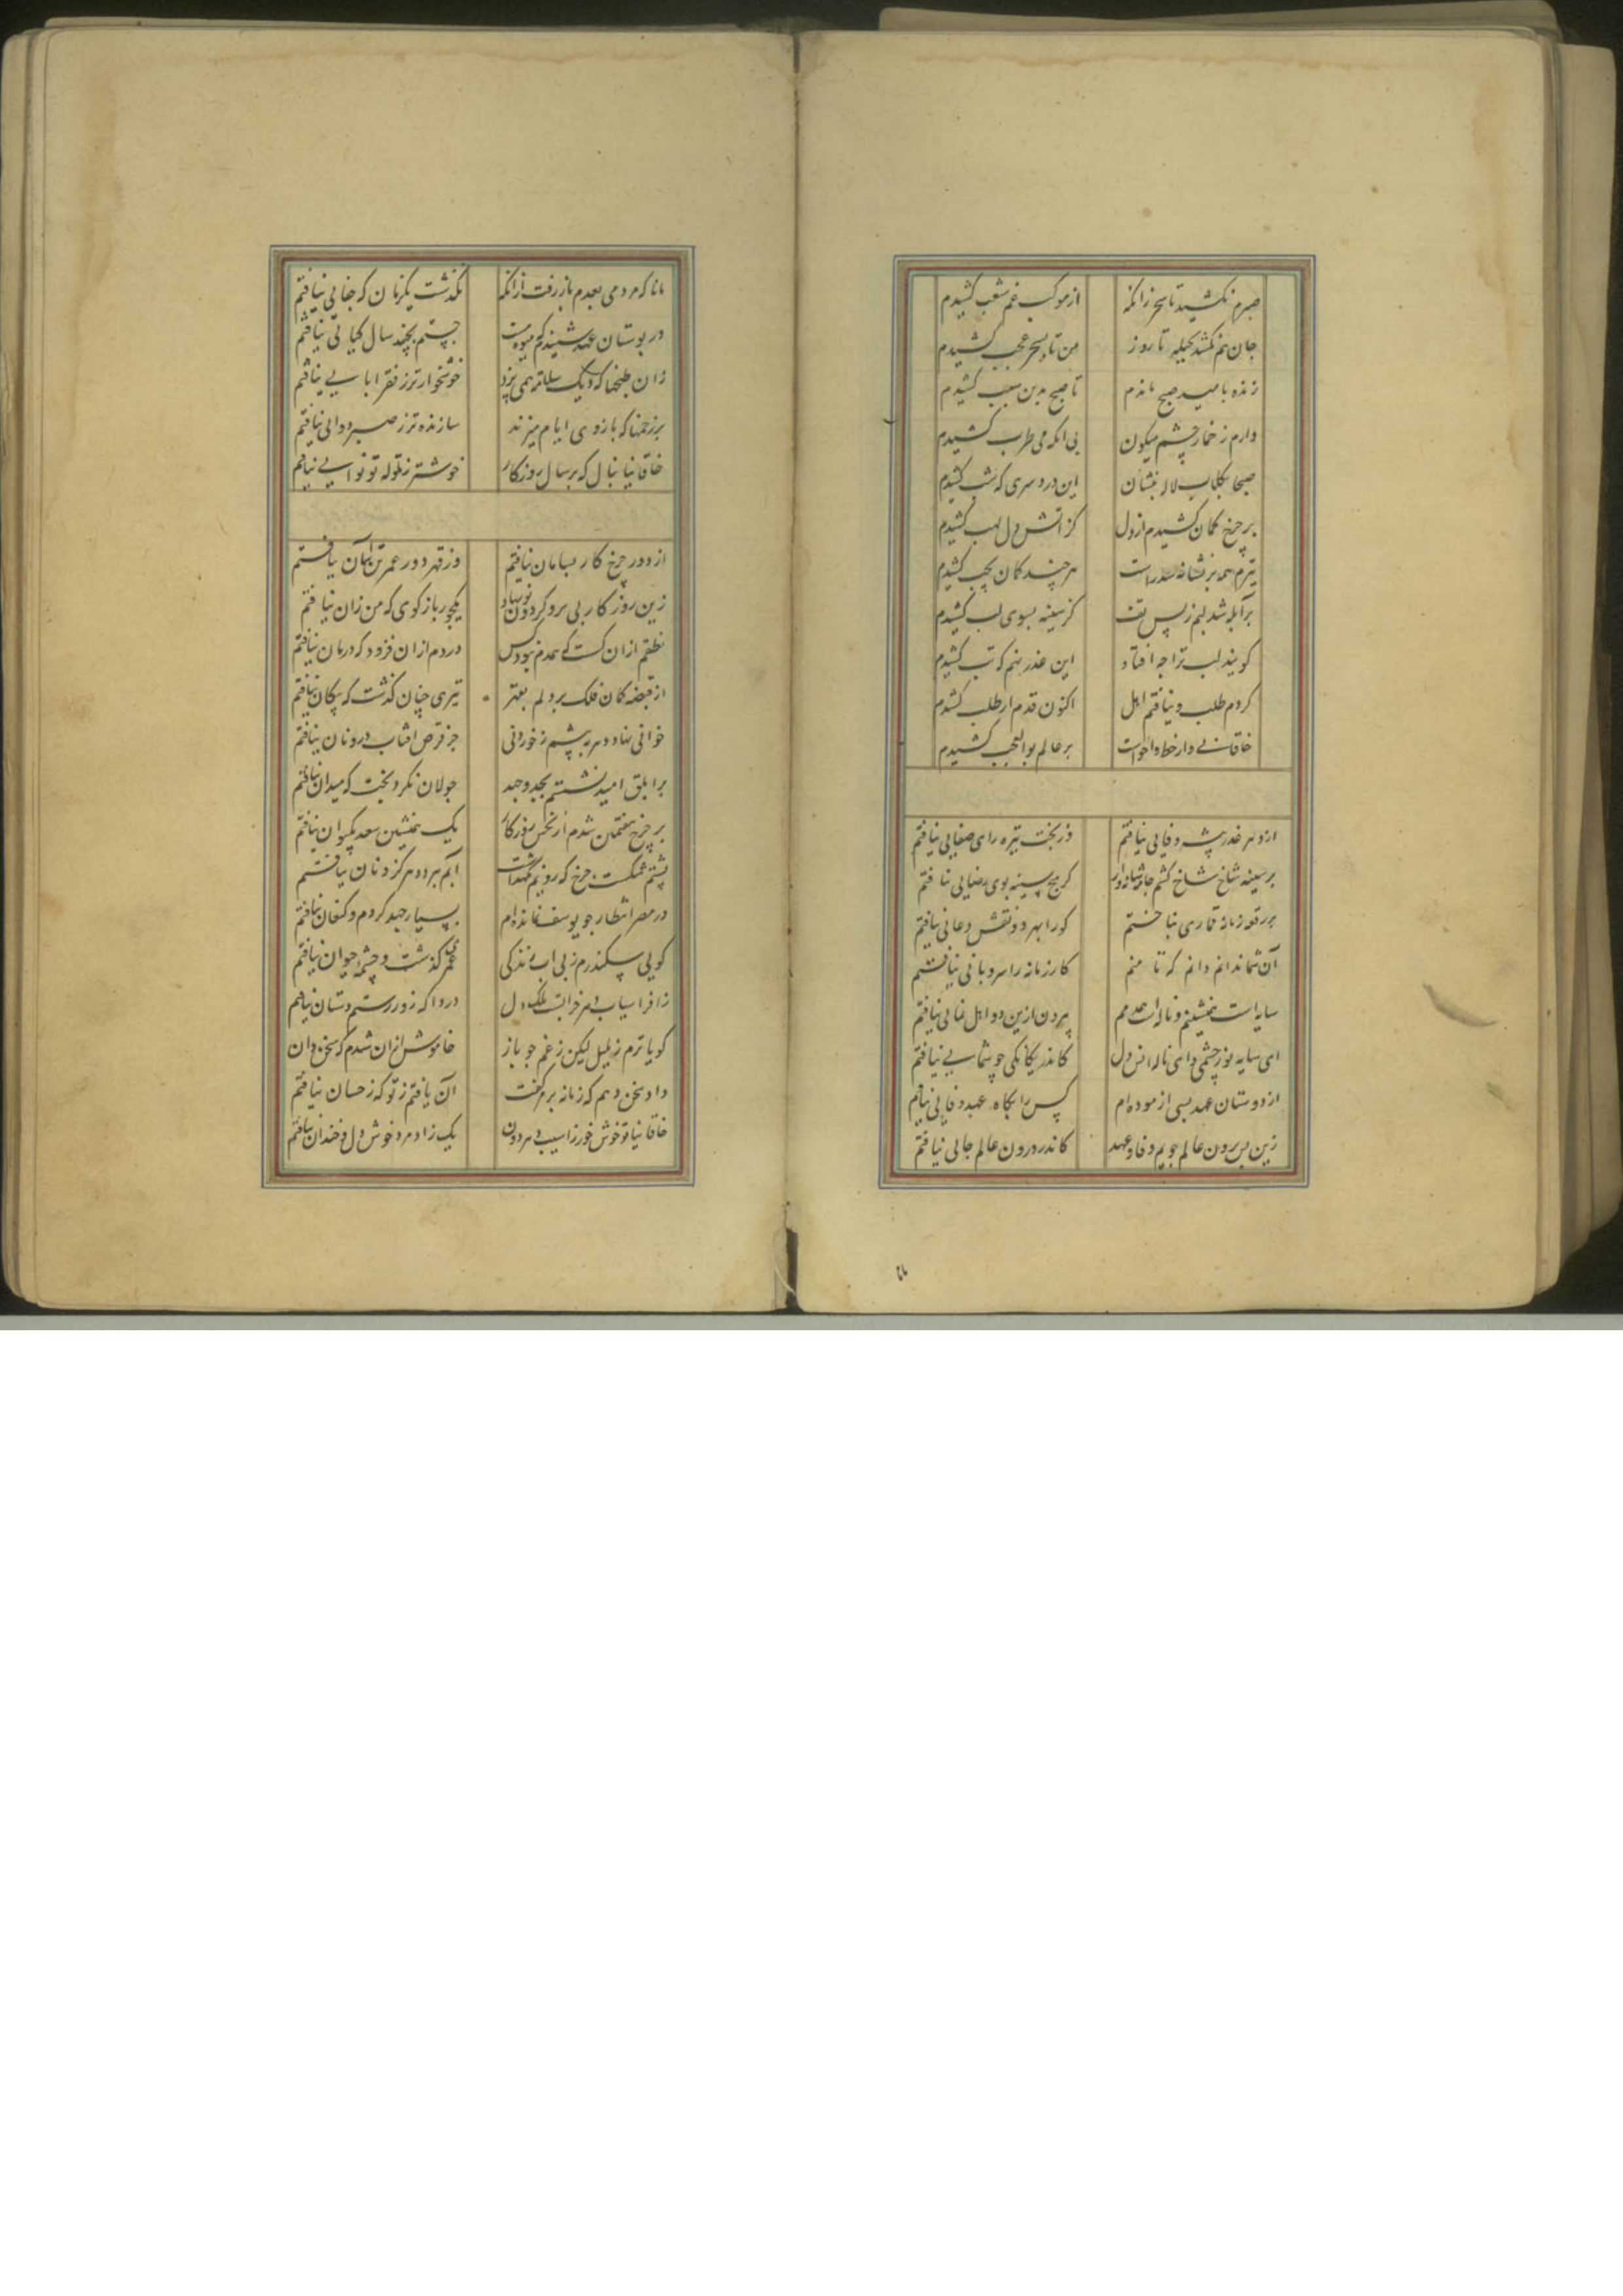 صبرم نکشید تا سحر زانکه از موکب غم شعب کشیدم
جان هم نکشد بحیله تا روز من تا بسحر عجب کشیدم
زنده بامید صبح ماندم تا صبح بدین سبب کشیدم
دارم ز خمار چشم میگون بی انکه می طرب کشیدم
صبحا بگلاب لاله بنشان این دردسری که شب کشیدم
بر چرخ کمان کشیدم از دل کز اتش دل لهب کشیدم
تیرم همه بر نشانه شد راست هر چند کمان بچپ کشیدم
پر آبله شد لبم ز بس تف کز سینه بسوی لب کشیدم
کویند لب ترا چه افتاد این عذر نهم که تب کشیدم
کردم طلب و نیافتم اهل اکنون قدم از طلب کشیدم
خاقانی وار خط واخواست بر عالم بوالعجب کشیدم
از دهر غدر پیشه وفایی نیافتم وز بخت تیره رای صفایی نیافتم
بر سینه شاخ شاخ کنم جامه شانه وار کز هیچ سینه بوی رضایی نیافتم
بر رقعه زمانه قماری نباختم کورا بهر دو نقش دغائی نیافتم
آن شما ندانم دانم که تا منم کار زمانه را سر و پائی نیافتم
سایه است همنشینم و ناله است همدمم بیرون ازین دو اهل نمائی نیافتم
ای سایه نور چشمی و ای ناله انس دل کاندر یکانکی چو شمایی نیافتم
از دوستان عهد بسی ازموده ام کس را بگاه عهد وفایی نیافتم
زین پس برون عالم جویم وفا و عهد کاندر درون عالم جائی نیافتم
مانا که مردمی بعدم باز رفت ازانکه نگذشت یکزمان که جفایی نیافتم
در بوستان عهد شنیدم که میوه هست جستم بچند سال گیائی نیافتم
زان طبخها که دیک سلامت همی پزد خوشخوارتر ز فقر ابایی نیافتم
بر زخمها که بازوی ایام میزند سازنده تر ز صبر دوائی نیافتم
خاقانیا بنال که بر ساز روزکار خوشتر ز نوله تو نوایی نیافتم
از دور چرخ کار بسامان نیافتم وز قهر دور عمر تن آسان نیافتم
زین روزکار بی بر و گردون نونهاد یکجور بازگوی که من زان نیافتم
نطقم ازان گسست که همدم نبود کس دردم ازان فزود که درمان نیافتم
از قبضه کمان فلک بر دلم بقهر تیری چنان گذشت که پیکان نیافتم
خوانی نهاد دهر به پیشم ز خوردنی جز قرص افتاب درو نان نیافتم
بر ابلق امید نشستم بجد و جهد جولان نکرد بخت که میدان نیافتم
بر چرخ هفتمین شدم از نحس روزکار یک همنشین سعد چو کیوان نیافتم
پشتم شکست چرخ که رویم نگهداشت آبم ببرد دهر کزو نان نیافتم
در مصر انتظار چو یوسف نمانده ام بسیار جهد کردم و کنعان نیافتم
گویی سکندرم ز پی اب زندگی عمری گذشت و چشمه حیوان نیافتم
ز افراسیاب دهر خرابست ملک دل دردا که زور رستم دستان نیافتم
کویاترم ز بلبل لیکن ز غم چو باز خاموش ازان شدم که سخن دان
داد سخن دهم که زمانه برمز گفت آن یافتم ز تو که ز حسان نیافتم
خاقانیا تو غم خور از اسیب دهر دون یک زاد مرد خوش دل و خندان نیافتم